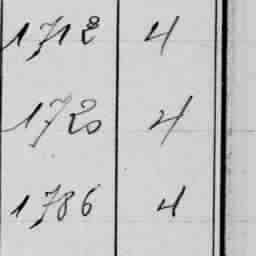 1712 4
1720 4
1786 4